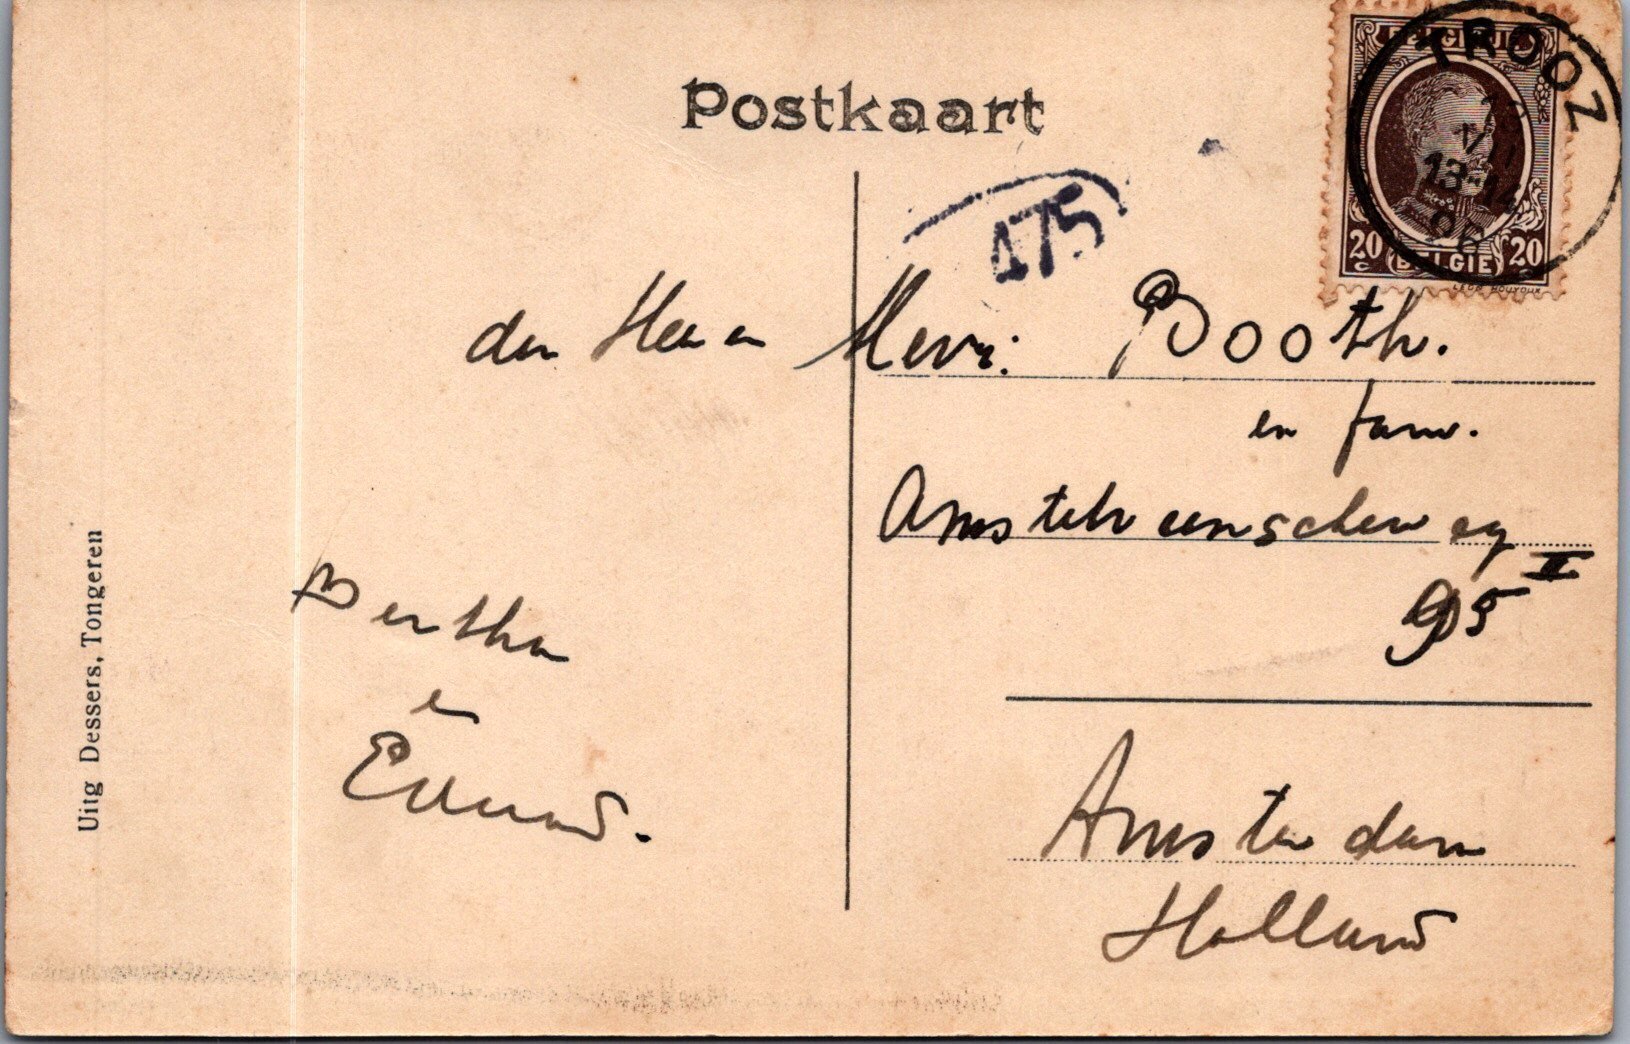 Postkaart
BELGIQUE
TROOZ
VII
13-14
20 c BELGIE 20 c
LEGR. HOUYOUX
475
den Heer en Mevr: Booth.
en fam.
Amstelveenscheweg
95 II
Amsterdam
Holland
Bertha
en
Eduard.
Uitg Dessers, Tongeren